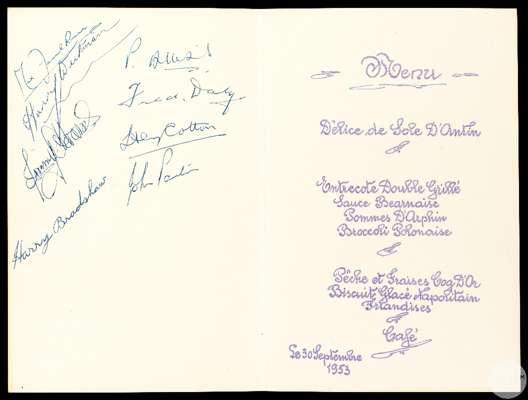 Max Faulkner
Harry Weetman
Jimmy Adams
Harry Bradshaw
P. Alliss
Fred. Daly
Henry Cotton
John Panton
Menu
Délice de Sole D'Antin
Entrecote Double Grillé
Sauce Bearnaise
Pommes D'Arphin
Broccoli Polonaise
Pêche et Fraises Coq D'Or
Biscuit Glacé Napolitain
Friandises
Café
Le 30 Septembre
1953